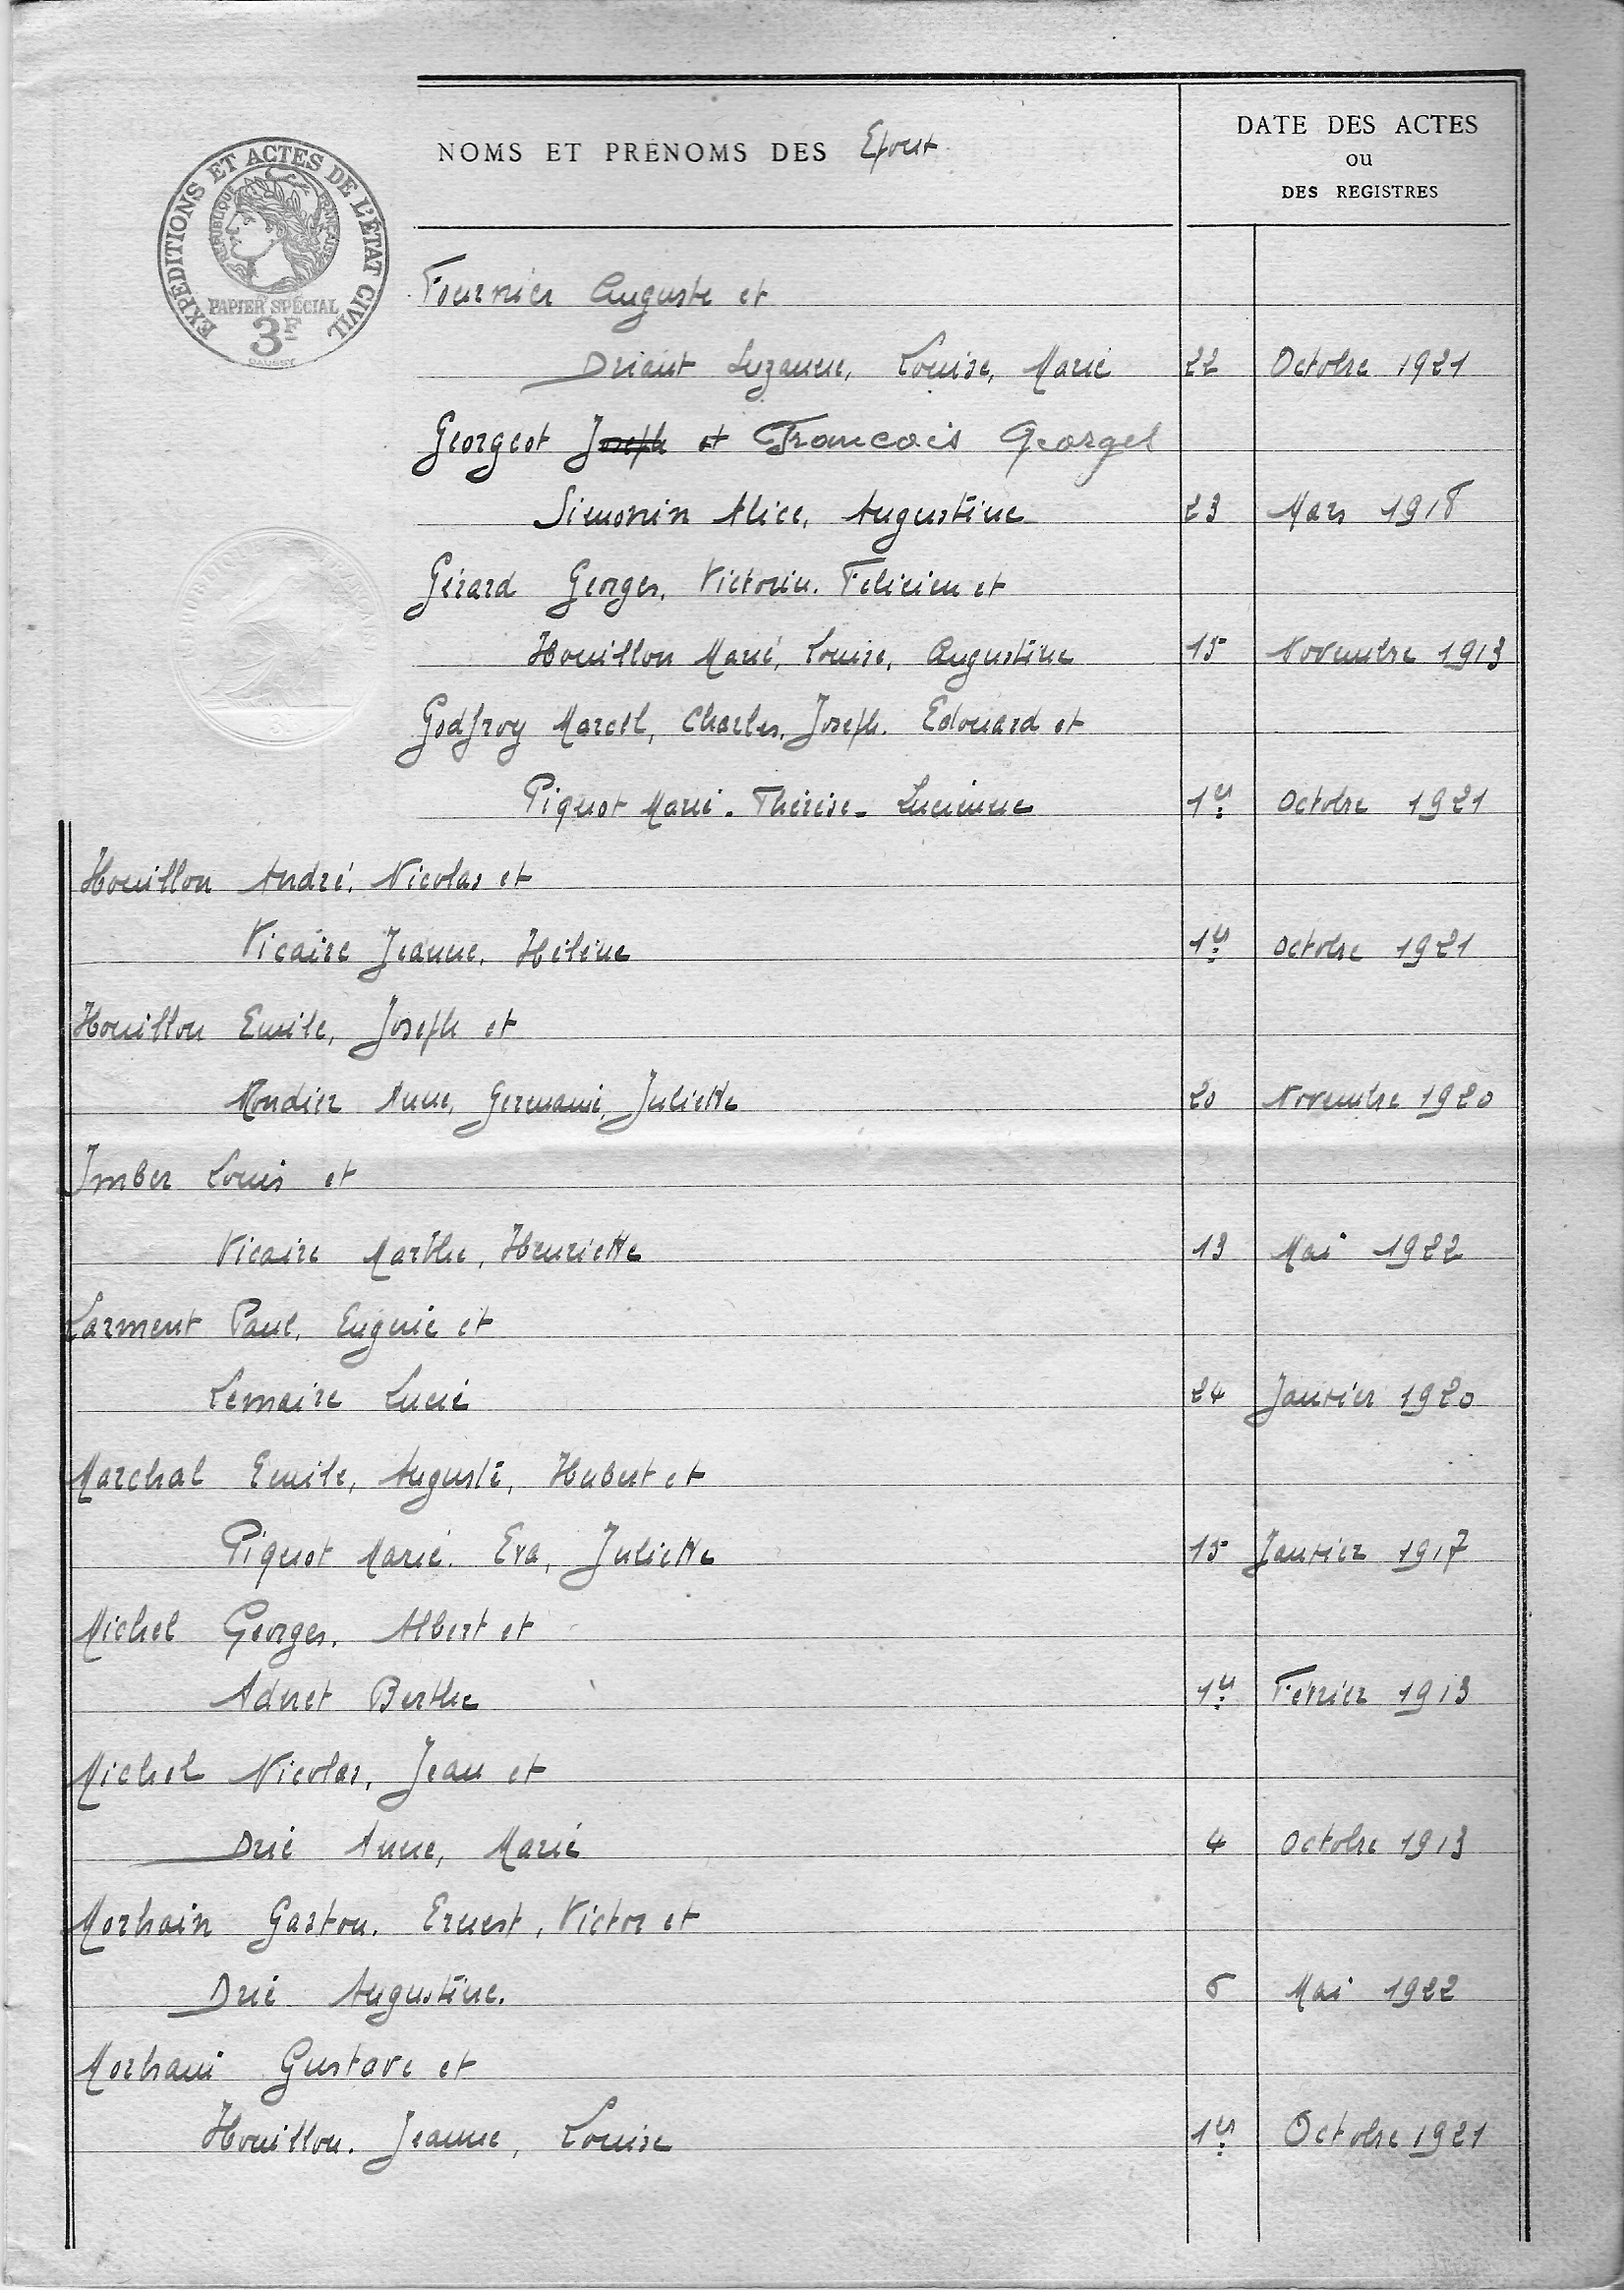 NOMS ET PRÉNOMS DES Epoux
DATE DES ACTES
ou
DES REGISTRES
EXPEDITIONS ET ACTES DE L'ÉTAT CIVIL
REPUBLIQUE FRANÇAISE
PAPIER SPÉCIAL
3F
Fournier Auguste et
Driant Suzanne, Louise, Marie 22 Octobre 1921
Georgeot Joseph et Francois Georgel
Simonin Alice, Augustine 23 Mars 1918
Gérard Georges, Victorin. Felicien et
Houillon Marie, Louise, Augustine 15 Novembre 1913
Godfroy Marcel, Charles, Joseph. Edouard et
Piquot Marie. Thérèse. Lucienne 1er Octobre 1921
Houillon André, Nicolas et
Vicaire Jeanne, Hélène 1er octobre 1921
Houillon Emile, Joseph et
Mondier Anne, Germaine, Juliette 20 Novembre 1920
Imber Louis et
Vicaire Marthe, Henriette 13 Mai 1922
Larment Paul, Eugenie et
Lemaire Lucie 24 Janvier 1920
Marchal Emile, Auguste, Hubert et
Piquot Marie. Eva, Juliette 15 Janvier 1917
Michel Georges, Albert et
Adnet Berthe 1er Février 1913
Michel Nicolas, Jean et
Drié Anne, Marie 4 Octobre 1913
Morhain Gaston. Ernest, Victor et
Drié Augustine. 6 Mai 1922
Morhain Gustave et
Houillon. Jeanne, Louise 1er Octobre 1921